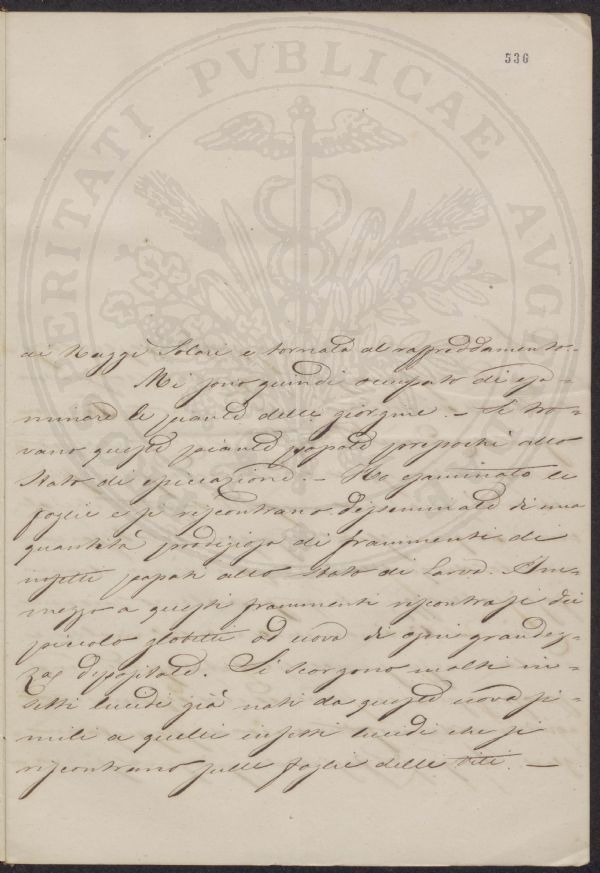 336
PROSPERITATI PVBLICAE AVGENDAE
dei Raggi Solari e tornata al raffreddamento.
Mi sono quindi occupato di esa-
minare le piante delle giorgine. — Si tro-
vano queste piante passate presso chè allo
stato di essicazione. — Ho esaminato le
foglie e si riscontrano disseminate di una
quantità prodigiosa di frammenti di
insetti passati allo stato di larva. Am-
mezzo a questi frammenti riscontransi dei
piccolo globetti od uova di ogni grandez-
za depositate. Si scorgono molti in-
setti lucidi già nati da queste uova si-
mili a quelli insetti lucidi che si
riscontrano sulle foglie delle Viti. —